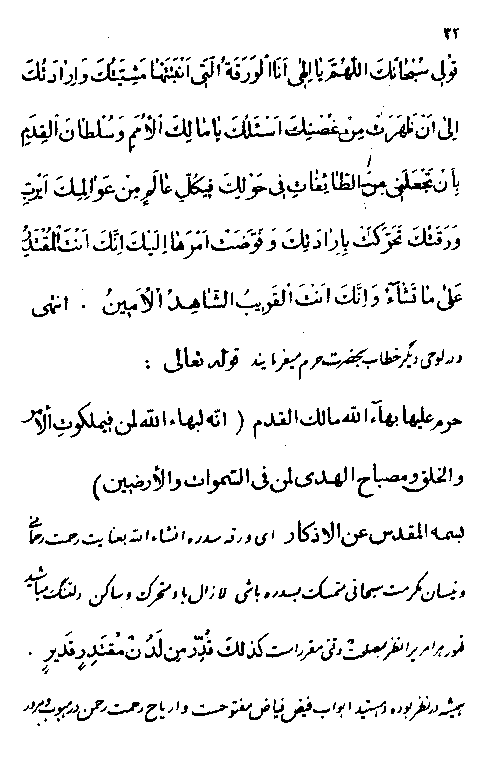 ۳۲
قُولِي سُبْحَانَكَ اللّٰهُمَّ يَا اِلٰهِي اَنَا الْوَرَقَةُ الَّتِي اَنْبَتَتْهَا مَشِيَّتُكَ وَ اِرَادَتُكَ
اِلٰى اَنْ ظَهَرَتْ مِنْ غُصْنِكَ اَسْئَلُكَ يَا مَالِكَ الْاُمَمِ وَ سُلْطَانَ الْقِدَمِ
بِاَنْ تَجْعَلَنِي مِنَ الطَّائِفَاتِ فِي حَوْلِكَ فِيكُلِّ عَالَمٍ مِنْ عَوَالِمِكَ اَيْ رَبِّ
وَرَقَتُكَ تَحَرَّكَتْ بِاِرَادَتِكَ وَ فَوَّضَتْ اَمْرَهَا اِلَيْكَ اِنَّكَ اَنْتَ الْمُقْتَدِرُ
عَلٰى مَا تَشَآءُ وَ اِنَّكَ اَنْتَ الْقَرِيبُ الشَّاهِدُ الْاَمِينُ . انتهى
و در لوحی دیگر خطاب بحضرت حرم میفرمایند قوله تعالى :
حرم عليها بهآء الله مالك القدم ( انّه لبهاء الله لمن فيملكوت الأمر
والخلق و مصباح الهدى لمن فى السّموات والأرضين )
بسمه المقدس عن الاذكار ای ورقه سدره انشاء الله بعنایت رحمت رحمانی
و نیسان مکرمت سبحانی متمسک بسدره باشی لا زال باو متحرک و ساکن دلتنگ مباشید
ظهور هر امری را نظر بمصلحت وقتی مقرر است كَذٰلِكَ قُدِّرَ مِنْ لَدُنْ مُقْتَدِرٍ قَدِيرٍ .
همیشه در نظر بوده و هستید ابواب فیض فیاض مفتوحست و ارياح رحمت رحمن در هبوب و مرور